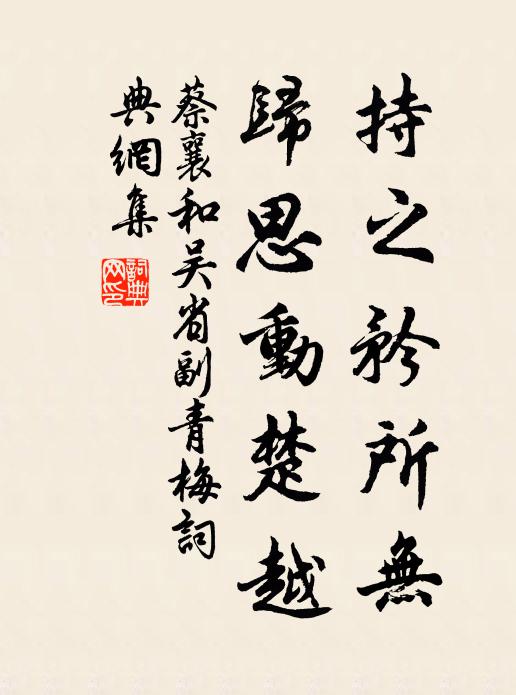 持之矜所無
歸思動楚越
蔡襄和吴省副青梅詞
典網集
詞典網印